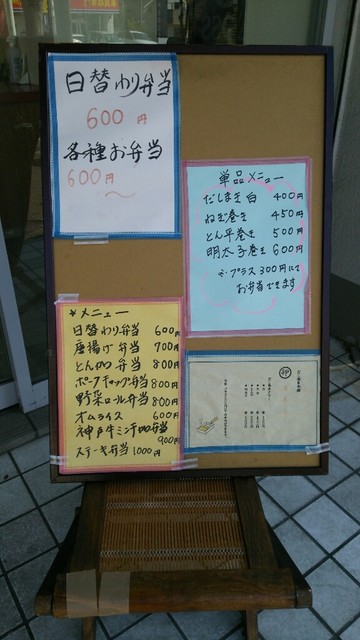 日替わり弁当
600円
各種お弁当
600円
〜
単品メニュー
だしまき玉 400円
ねぎ巻き 450円
とん平巻き 500円
明太子巻き 600円
プラス300円にて
お弁当できます
*メニュー
日替わり弁当 600円
唐揚げ弁当 700円
とんかつ弁当 800円
ポークチャップ弁当 800円
野菜ロール弁当 800円
オムライス 600円
神戸牛ミンチカツ弁当
900円
ステーキ弁当 1000円